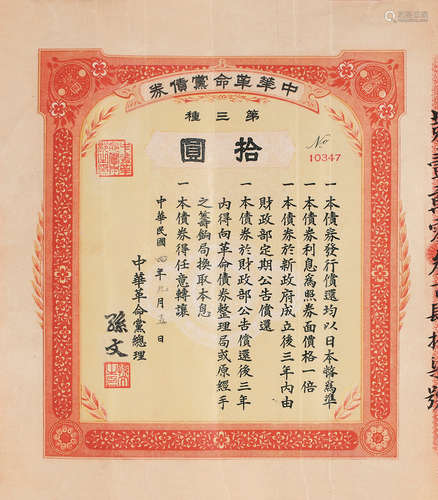 中華革命黨債券
第三種
拾圓
No
10347
一本債券發行償還均以日本幣爲準
一本債券利息爲照券面價格一倍
一本債券於新政府成立後三年內由
財政部定期公告償還
一本債券於財政部公告償還後三年
內得向革命債券整理局或原經手
之籌餉局換取本息
一本債券得任意轉讓
中華民國四年九月五日
中華革命黨總理
孫文